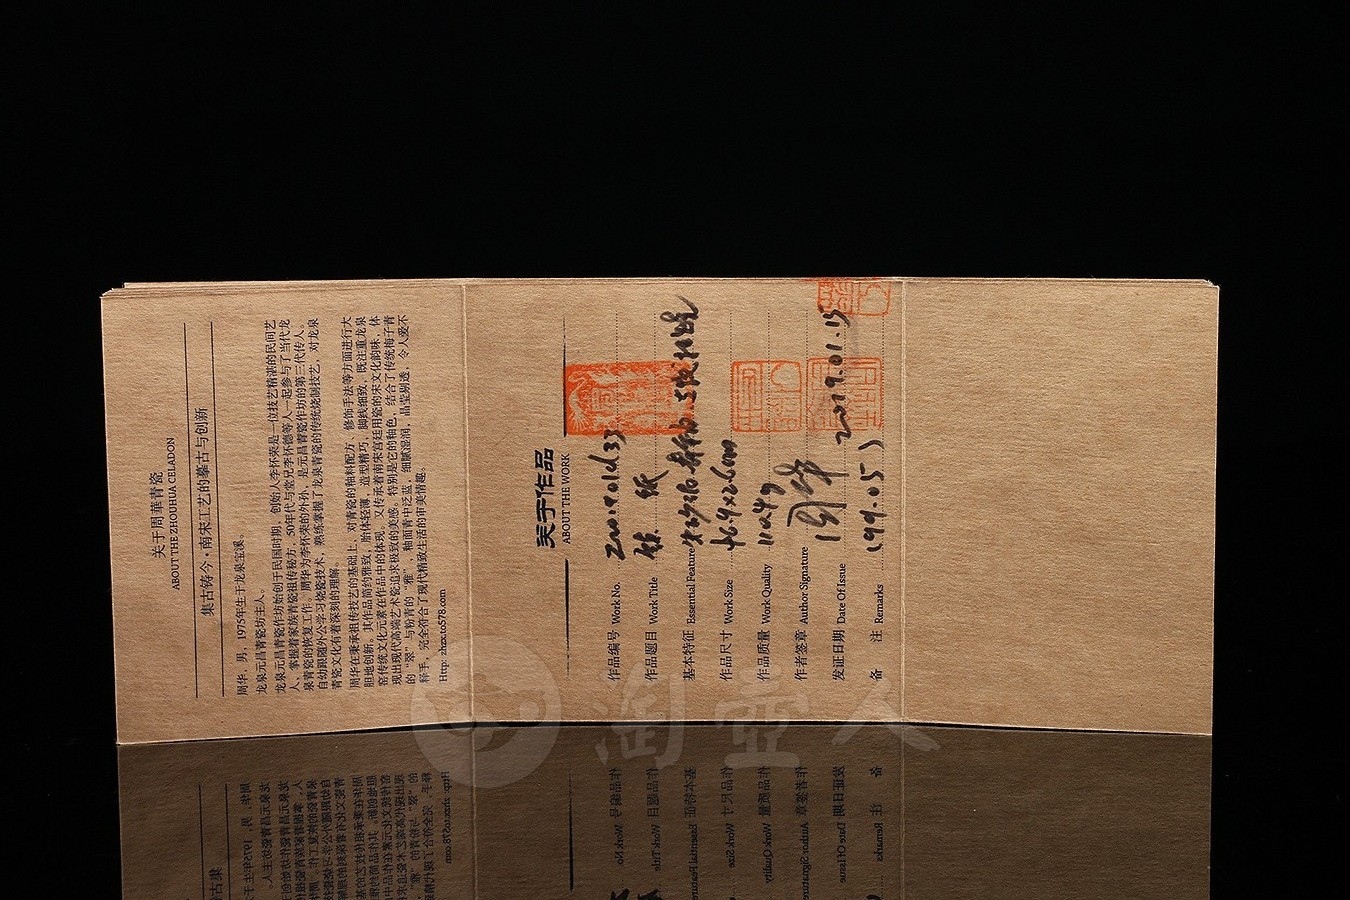 关于周華青瓷
ABOUT THE ZHOUHUA CELADON
集古铸今·南宋工艺的摹古与创新
周华，男，1975年生于龙泉宝溪。
龙泉元昌青瓷坊主人。
龙泉元昌青瓷作坊始创于民国时期，创始人李怀荣是一位技艺精湛的民间艺
人，掌握着家族青瓷祖传秘方，50年代与堂兄李怀德等人一起参与了当代龙
泉青瓷的恢复工作。周华为李怀荣的外孙，是元昌青瓷作坊的第三代传人。
自幼跟随外公学习烧瓷技术，熟练掌握了龙泉青瓷的传统烧制技艺，对龙泉
青瓷文化有着深刻的理解。
周华在秉承祖传技艺的基础上，对青瓷的釉料配方、修饰手法等方面进行大
胆地创新。其作品简约雅致，胎体轻薄，造型精巧，脚线细致，既注重龙泉
窑传统文化元素在作品中的体现，又传承着南宋宫廷用瓷的宋文化韵味，体
现出现代高端艺术瓷追求极致的美感。特别是它的釉色，结合了传统梅子青
的“翠”与粉青的“雅”，釉面青中泛蓝，细腻湿润，晶莹剔透，令人爱不
释手，完全符合了现代精致生活的审美情趣。
Http: zhzx.to578.com
关于作品
ABOUT THE WORK
作品编号 Work No.
作品题目 Work Title
基本特征 Essential Feature
作品尺寸 Work Size
作品质量 Work Quality 110.4g
作者签章 Author Signature 周华
发证日期 Date Of Issue 2019.01.15
备 注 Remarks (199.05)
淘壶人